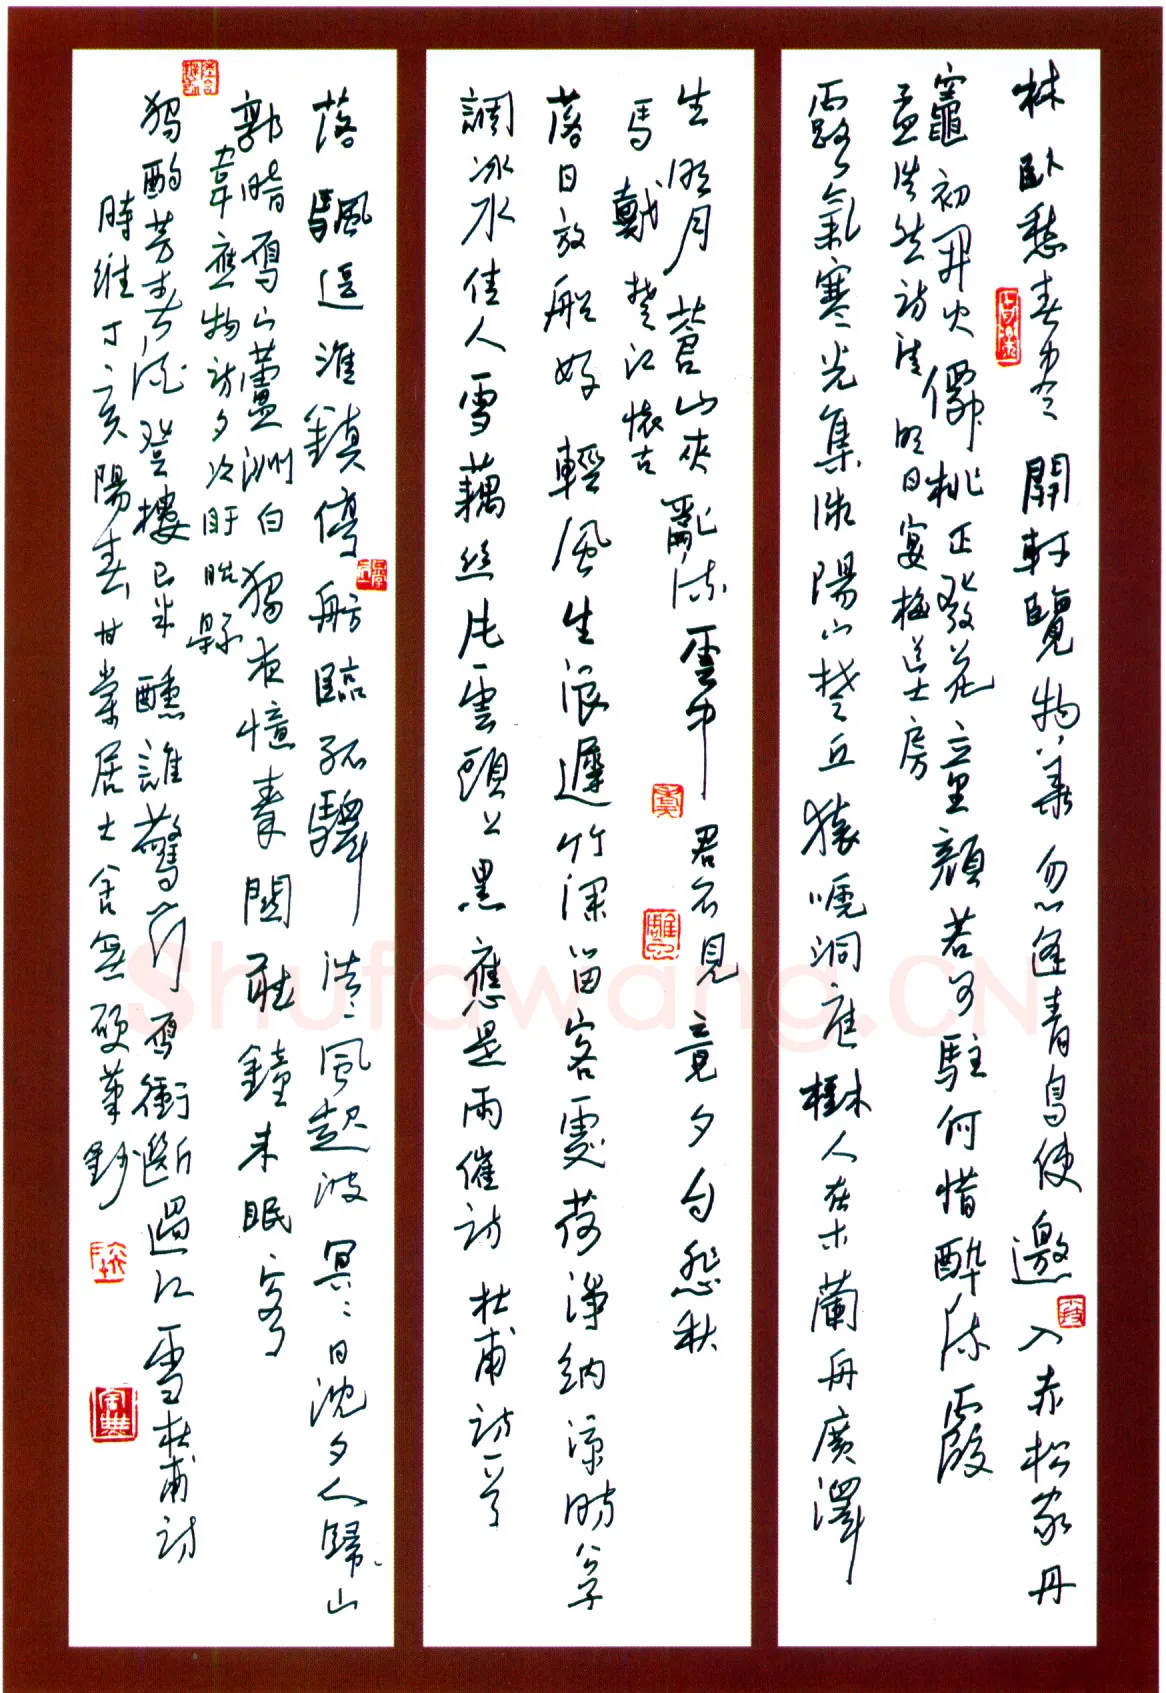 林卧愁春盡開軒覽物華忽逢青鳥使邀入赤松家丹
竈初開火僊桃正發花童顏若可駐何惜醉流霞
孟浩然詩清明日宴梅道士房
露氣寒光集微陽下楚丘猿啼洞庭樹人在木蘭舟廣澤
生明月蒼山夾亂流雲中君不見竟夕自悲秋
馬戴楚江懷古
落日放船好輕風生浪遲竹深留客處荷淨納涼時公子
調冰水佳人雪藕絲片雲頭上黑應是雨催詩杜甫詩一首
落驅逗淮鎮停舫臨孤驛浩浩風起波冥冥日沈夕人歸山
郭暗雁下蘆洲白獨夜憶秦關聽鐘未眠客
韋應物詩夕次盱眙縣
獨酌芳春酒登樓已半醺誰驚一行雁衝斷過江雲杜甫詩
時維丁亥陽春甘棠居士舍無硬筆鈔
Shufawang.CN